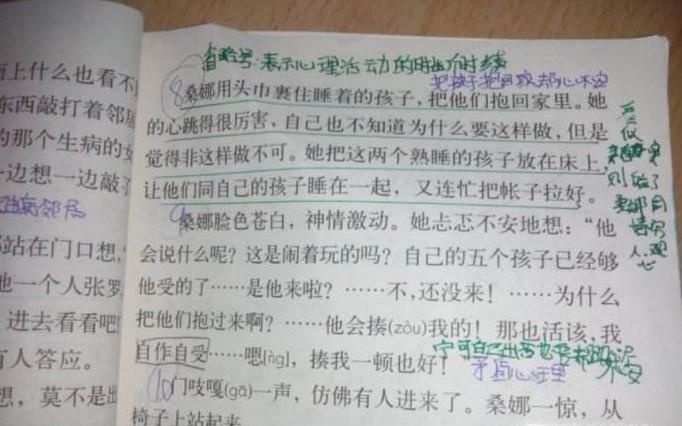 面上什么也看不
东西敲打着邻居
的那个生病的女
一边想一边敲了
站在门口想，
他一个人张罗
进去看看吧
有人答应。
想，莫不是出
省略号：表示心理活动的时断时续
8桑娜用头巾裹住睡着的孩子，把他们抱回家里。她
的心跳得很厉害，自己也不知道为什么要这样做，但是
觉得非这样做不可。她把这两个熟睡的孩子放在床上，
让他们同自己的孩子睡在一起，又连忙把帐子拉好。
9桑娜脸色苍白，神情激动。她忐忑不安地想：“他
会说什么呢？这是闹着玩的吗？自己的五个孩子已经够
他受的了……是他来啦？……不，还没来！……为什么
把他们抱过来啊？……他会揍(zòu)我的！那也活该，我
自作自受……嗯(ǹg)，揍我一顿也好！
矛盾心理
10门吱嘎(gā)一声，仿佛有人进来了。桑娜一惊，从
椅子上站起来